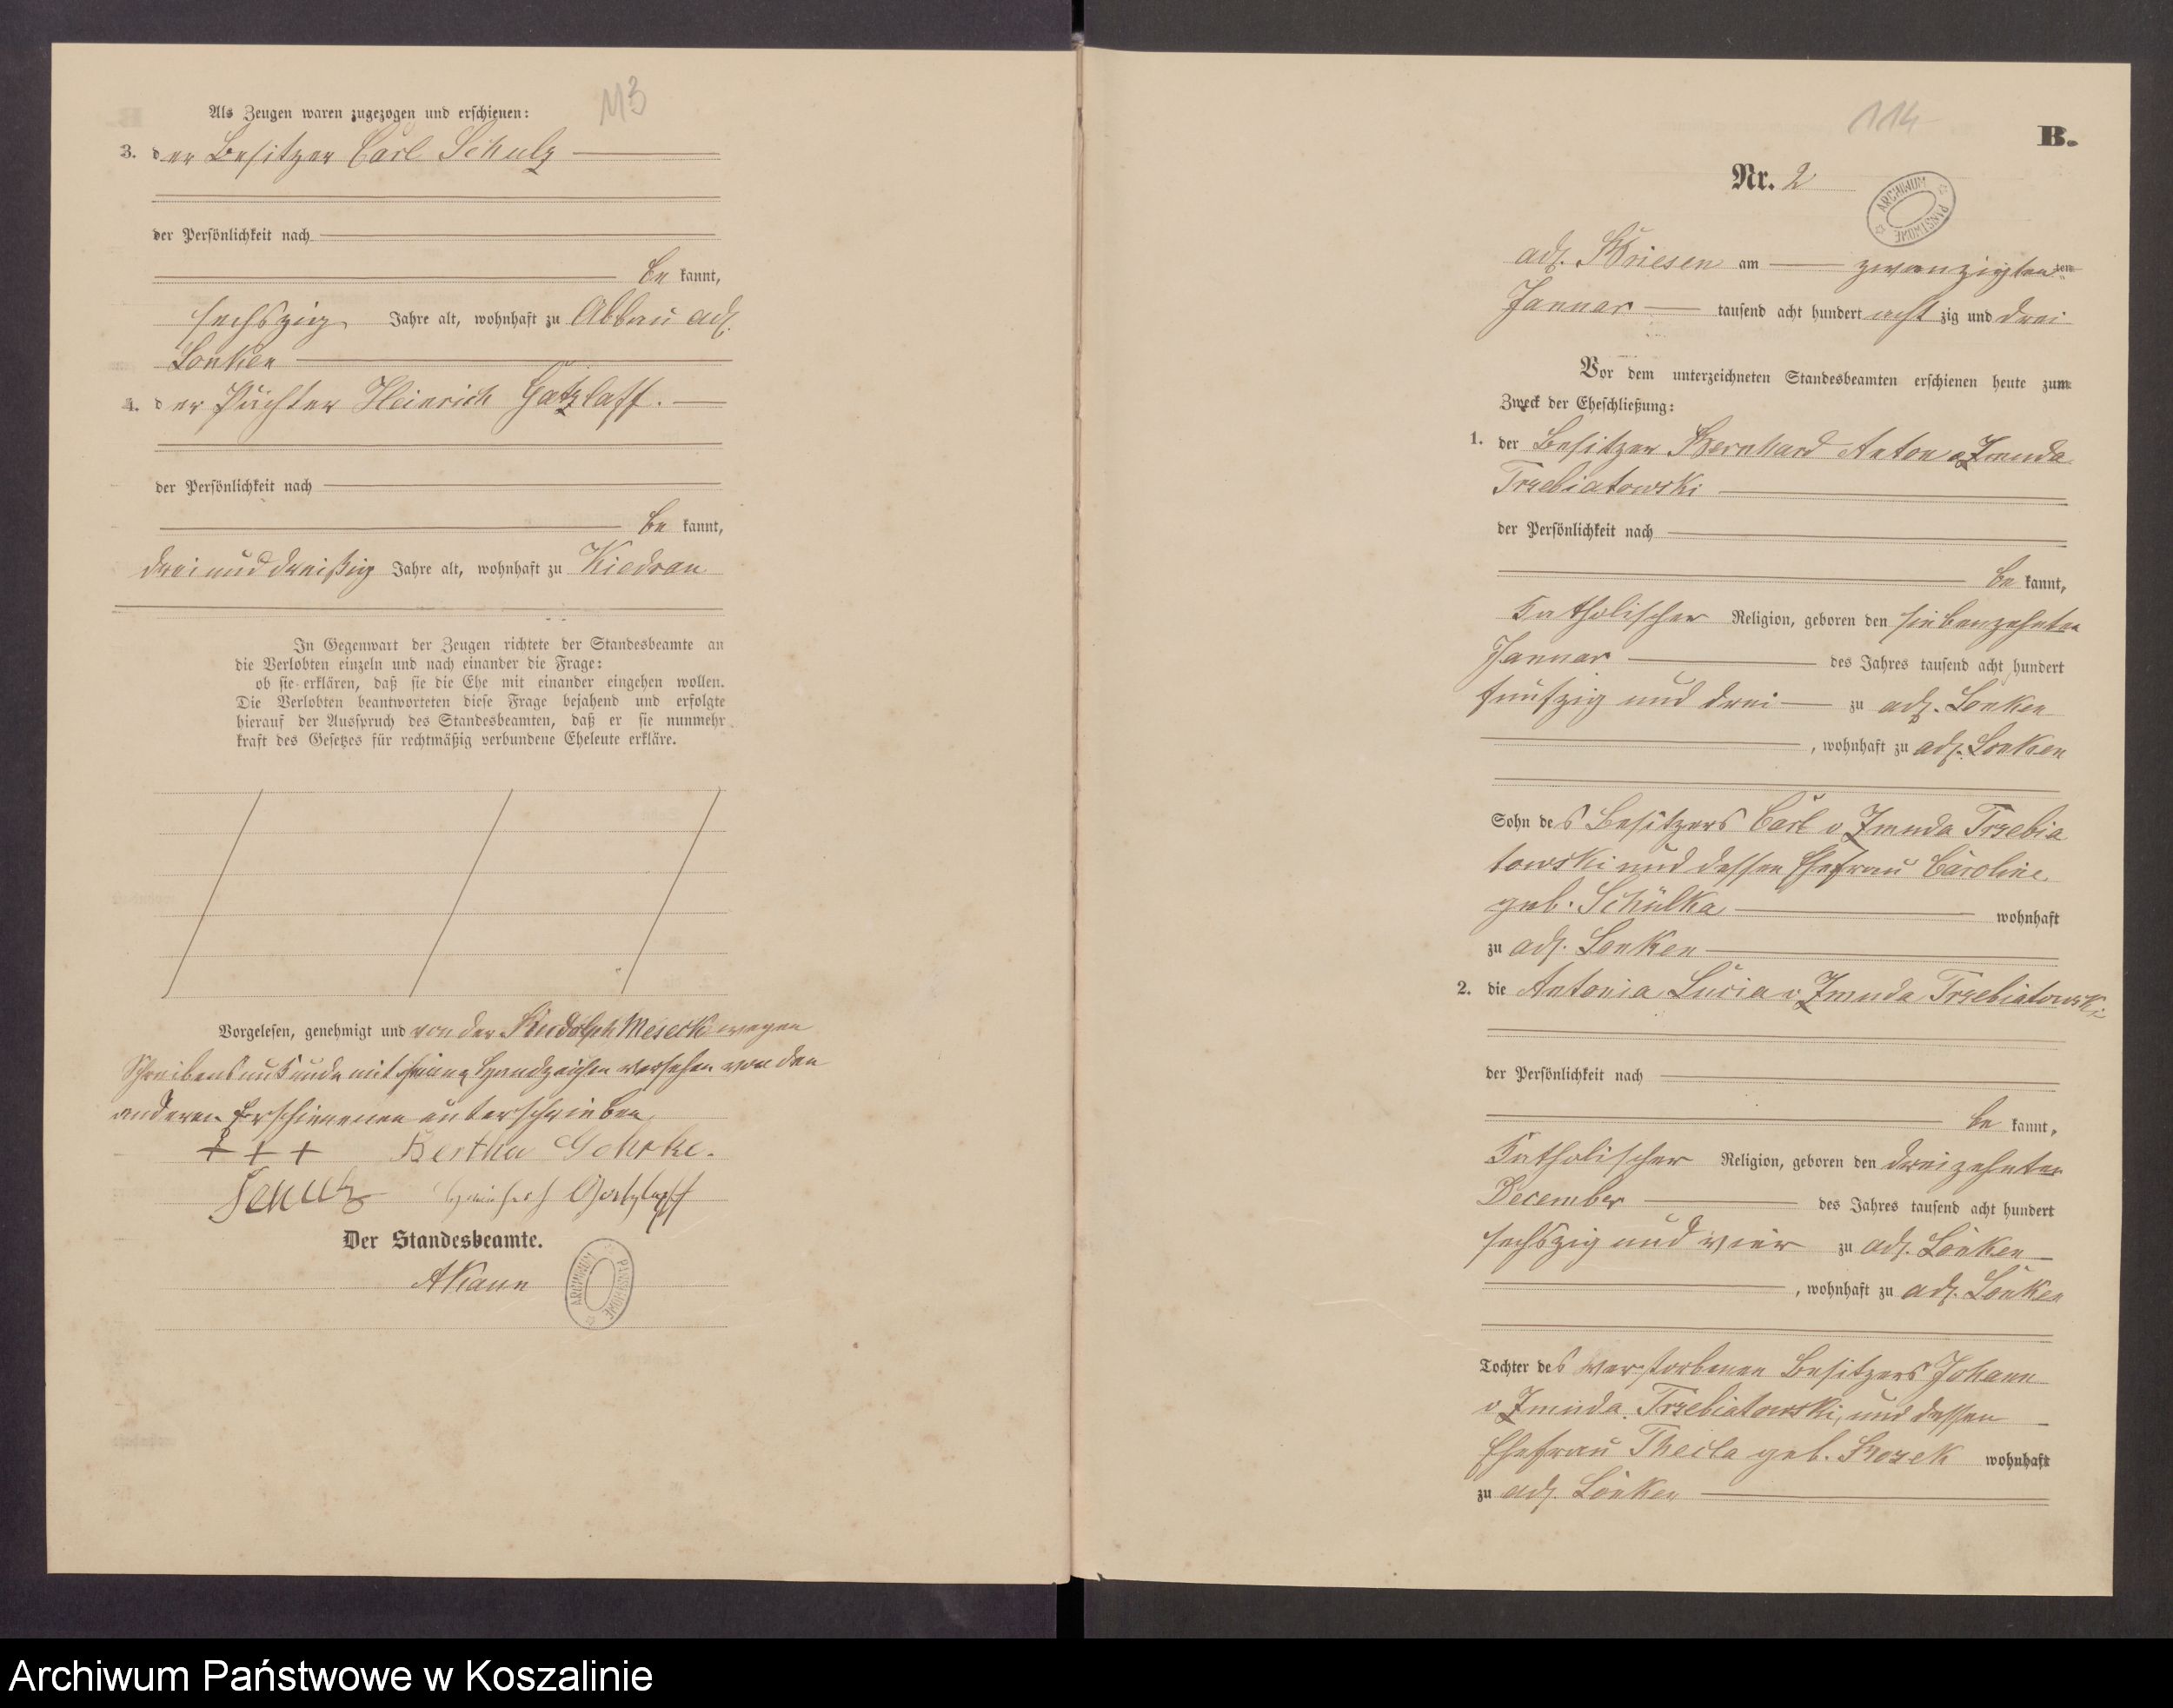 113
Als Zeugen waren zugezogen und erschienen:
3. der Besitzer Carl Schulz
der Persönlichkeit nach
be kannt,
sechszig Jahre alt, wohnhaft zu Abbau adl.
Lonken
4. der Pächter Heinrich Gatzlaff.
der Persönlichkeit nach
be kannt,
drei und dreißig Jahre alt, wohnhaft zu Kiedrau
In Gegenwart der Zeugen richtete der Standesbeamte an
die Verlobten einzeln und nach einander die Frage:
ob sie erklären, daß sie die Ehe mit einander eingehen wollen.
Die Verlobten beantworteten diese Frage bejahend und erfolgte
hierauf der Ausspruch des Standesbeamten, daß er sie nunmehr
kraft des Gesetzes für rechtmäßig verbundene Eheleute erkläre.
Vorgelesen, genehmigt und von der Rudolph Meseck wegen
Schreibensunkunde mit seinem Handzeichen versehen von den
anderen Erschienenen unterschrieben.
+ + + Bertha Gehrke.
Schulz Heinrich Gatzlaff
Der Standesbeamte.
AKann
ARCHIWUM PAŃSTWOWE
114
B.
Nr. 2
ARCHIWUM PAŃSTWOWE
adl. Briesen am zwanzigsten ten
Januar tausend acht hundert acht zig und drei
Vor dem unterzeichneten Standesbeamten erschienen heute zum
Zweck der Eheschließung:
1. der Besitzer Bernhard Anton v Zmuda
Trzebiatowski
der Persönlichkeit nach
be kannt,
katholischer Religion, geboren den siebenzehnten
Januar des Jahres tausend acht hundert
fünfzig und drei zu adl. Lonken
, wohnhaft zu adl. Lonken
Sohn des Besitzers Carl v Zmuda Trzebia
towski und dessen Ehefrau Caroline
geb. Schülka wohnhaft
zu adl. Lonken
2. die Antonia Lucia v Zmuda Trzebiatowski
der Persönlichkeit nach
be kannt,
katholischer Religion, geboren den dreizehnten
December des Jahres tausend acht hundert
sechszig und vier zu adl. Lonken
, wohnhaft zu adl. Lonken
Tochter des verstorbenen Besitzers Johann
v Zmuda Trzebiatowski, und dessen
Ehefrau Thecla geb. wohnhaft
zu adl. Lonken
Archiwum Państwowe w Koszalinie